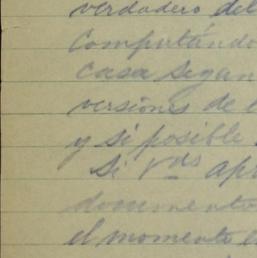 verdadero del
Comportándo
casa segan
versiones de l
y si posible
Si Vds apr
documento
el momento e